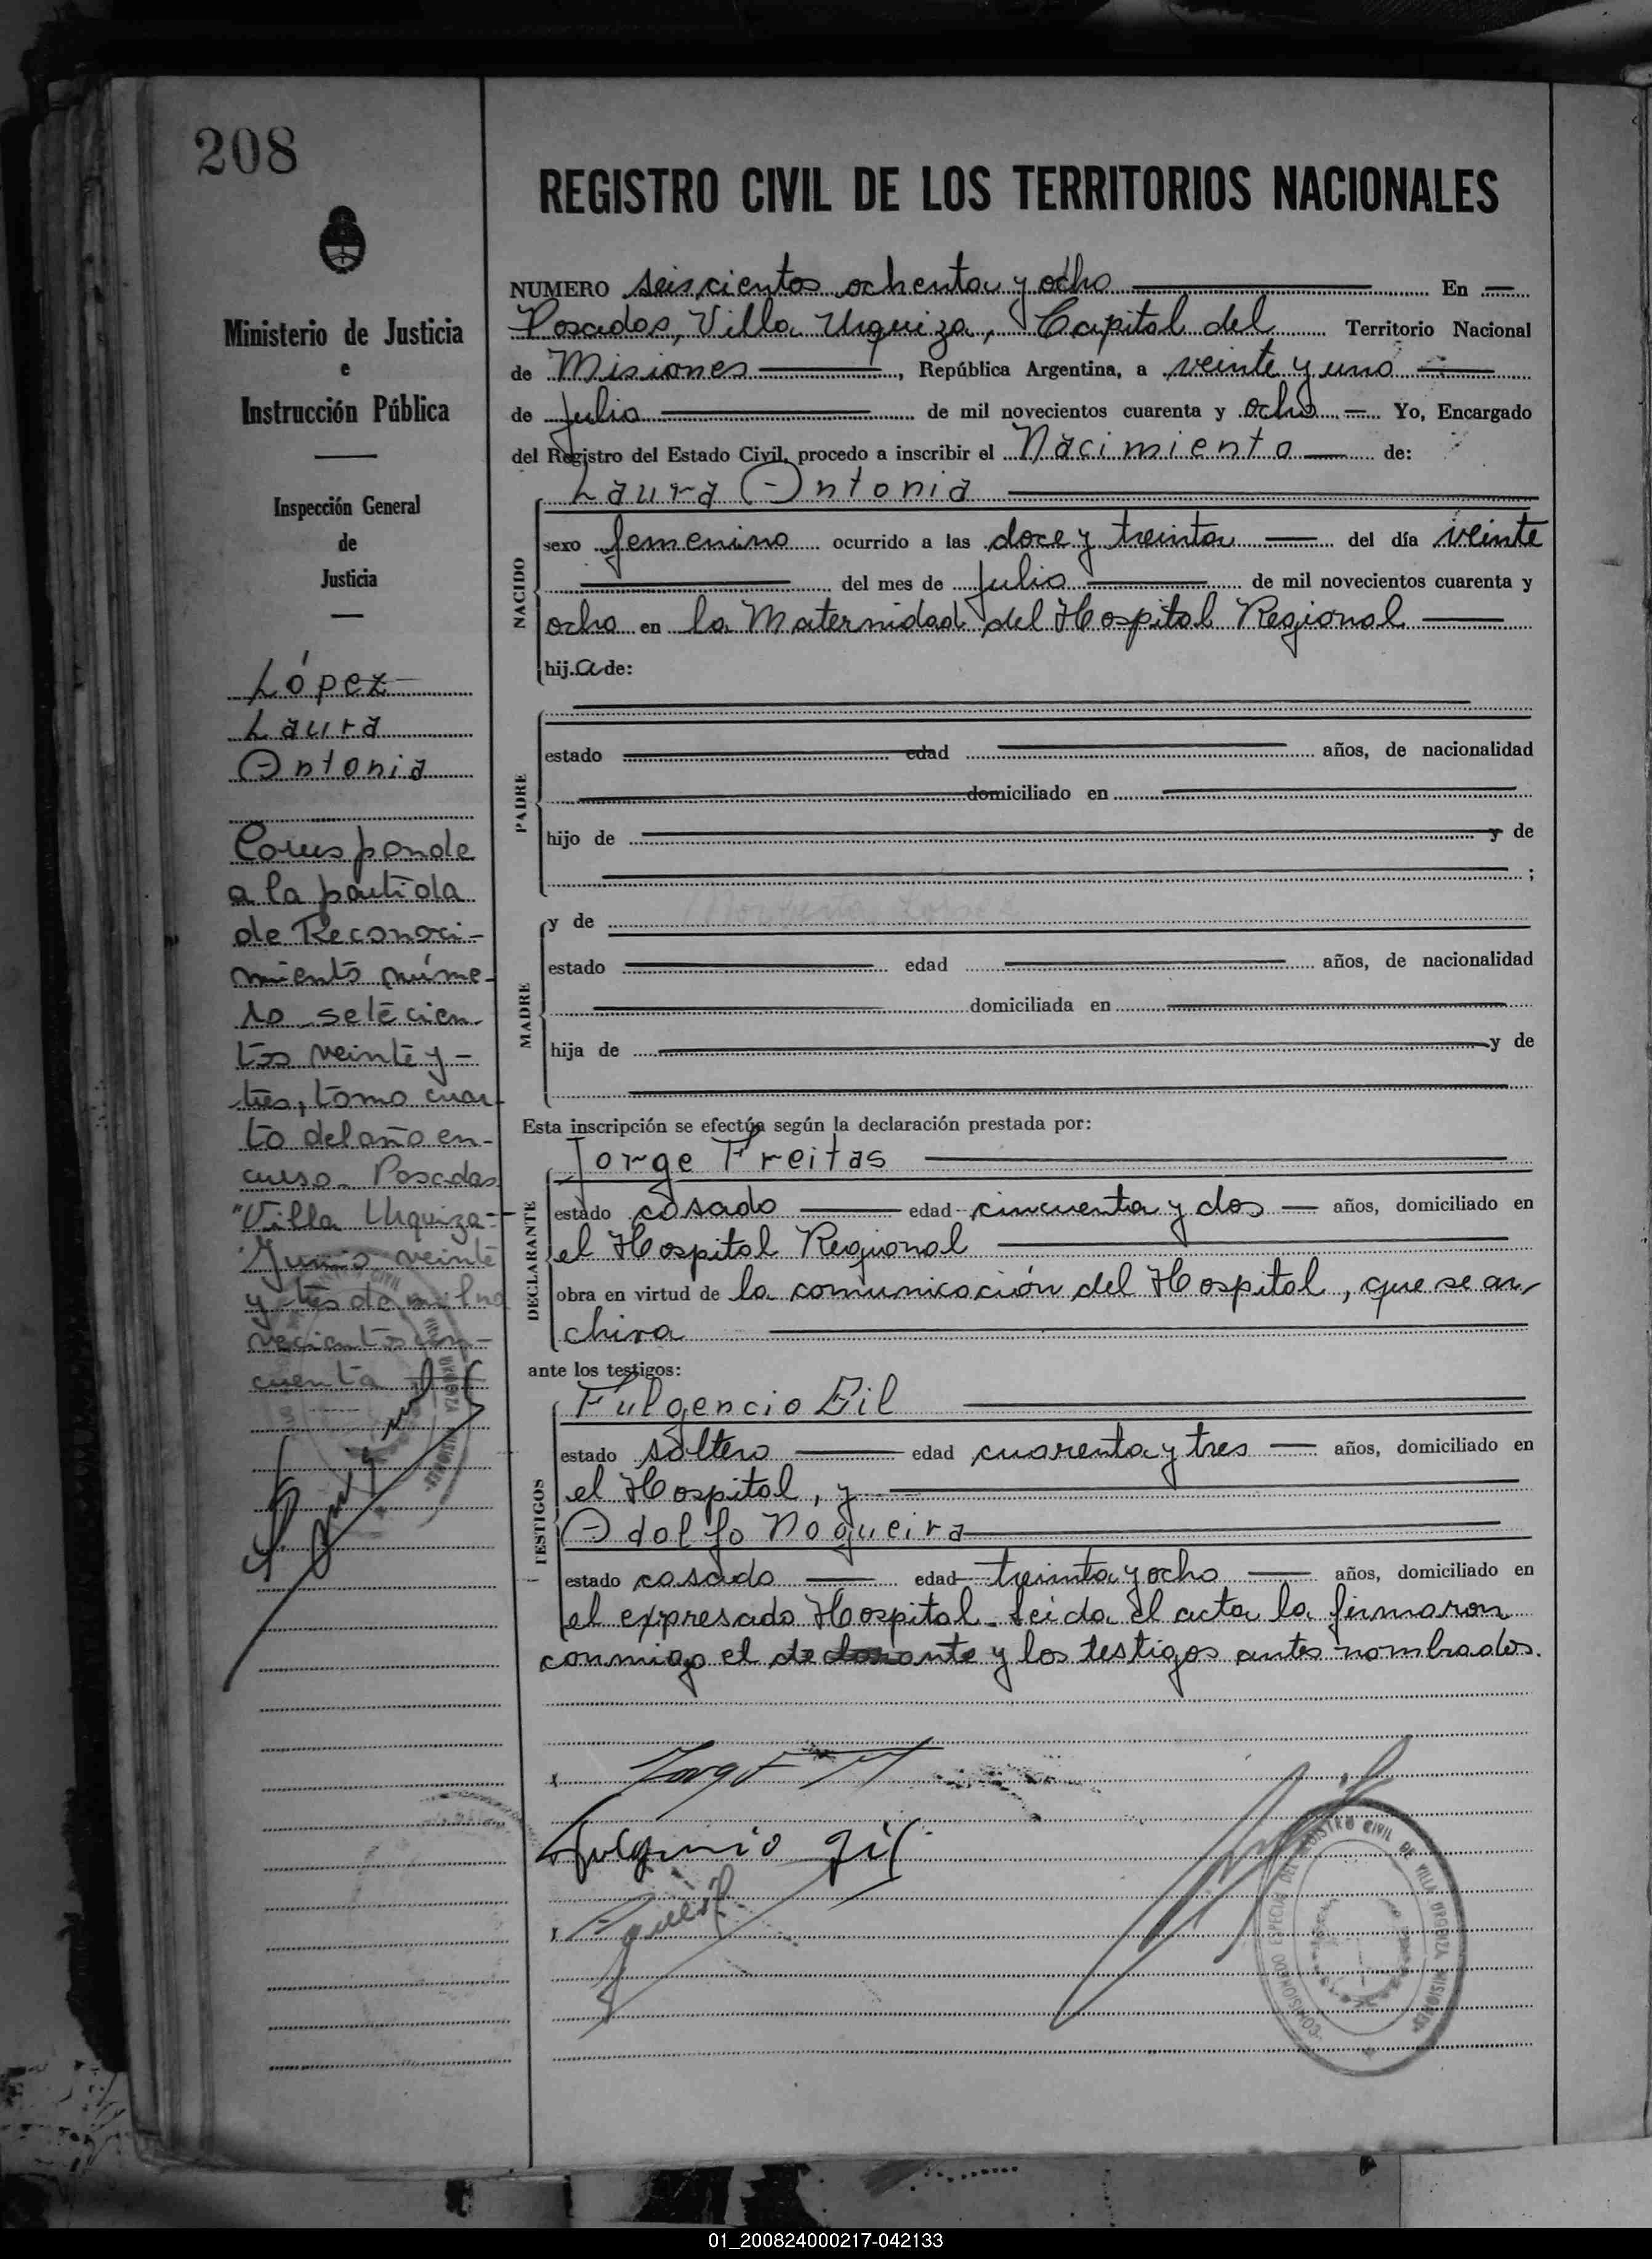 208
Ministerio de Justicia
e
Instrucción Pública
Inspección General
de
Justicia
López
Laura
Antonia
Corresponde
a la partida
de Reconoci-
miento núme-
ro setecien-
tos veinte y-
tres, tomo cuar-
to del año en-
curso. Posadas
"Villa Urquiza-
Junio veinte
y tres de mil no
vecientos cin-
cuenta
REGISTRO CIVIL DE LOS TERRITORIOS NACIONALES
NUMERO seiscientos ochenta y ocho En
Posadas, Villa Urquiza, Capital del Territorio Nacional
de Misiones, República Argentina, a veinte y uno
de Julio de mil novecientos cuarenta y ocho Yo, Encargado
del Registro del Estado Civil, procedo a inscribir el Nacimiento de:
Laura Antonia
NACIDO
sexo femenino ocurrido a las doce y treinta del día veinte
del mes de Julio de mil novecientos cuarenta y
ocho en la Maternidad del Hospital Regional
hija de:
PADRE
estado edad años, de nacionalidad
domiciliado en
hijo de y de
;
MADRE
y de López
estado edad años, de nacionalidad
domiciliada en
hija de y de
Esta inscripción se efectúa según la declaración prestada por:
Jorge Freitas
DECLARANTE
estado casado edad cincuenta y dos años, domiciliado en
el Hospital Regional
obra en virtud de la comunicación del Hospital, que se ar
chiva
ante los testigos:
Fulgencio Gil
TESTIGOS
estado soltero edad cuarenta y tres años, domiciliado en
el Hospital, y
Adolfo Nogueira
estado casado edad treinta y ocho años, domiciliado en
el expresado Hospital. Leida el acta la firmaron
conmigo el declarante y los testigos antes nombrados.
Fulgencio Gil
COMISIONADO ESPECIAL DEL REGISTRO CIVIL DE VILLA URQUIZA MISIONES
01_200824000217-042133